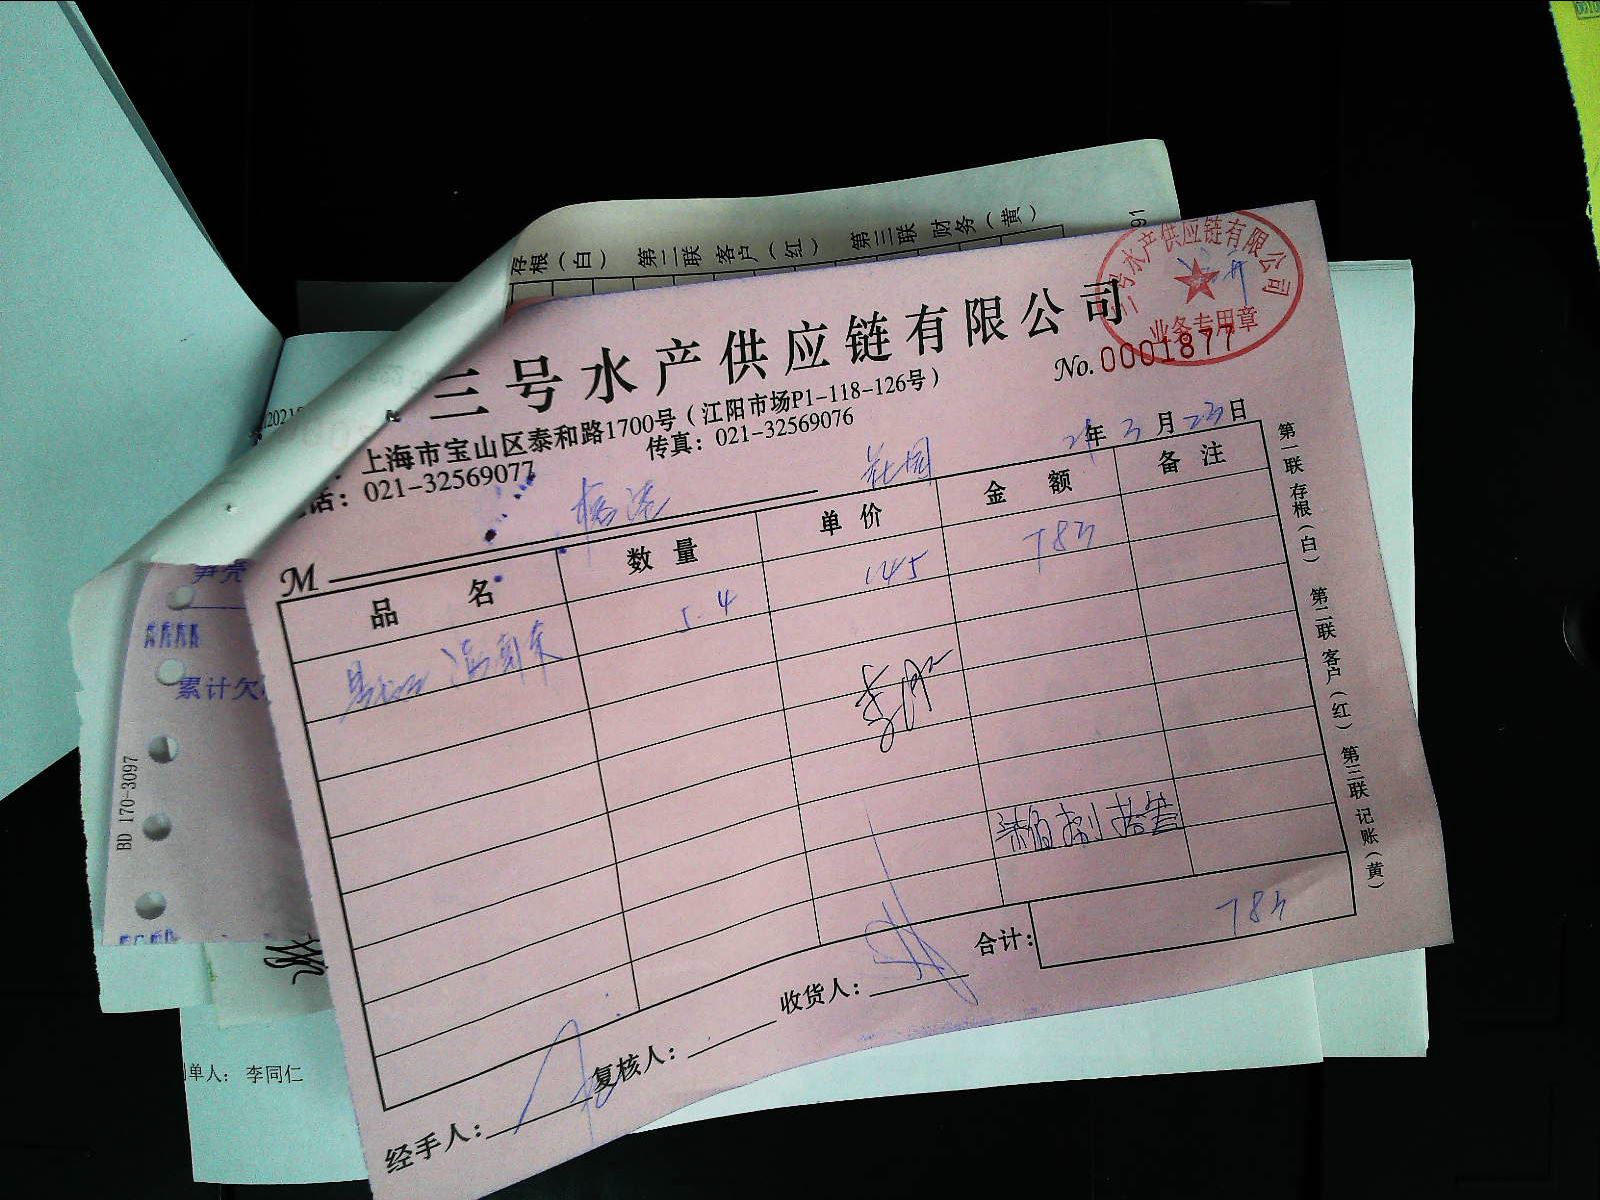 存根（白） 第二联 客户（红） 第三联 财务（黄）
91
三号水产供应链有限公司
三号水产供应链有限公司
业务专用章
No. 0001877
上海市宝山区泰和路1700号（江阳市场P1-118-126号）
话：021-32569077 传真：021-32569076
21年3月23日
M
花园
品名 数量 单价 金额 备注
5.4 145 783
柒佰捌拾叁
合计： 783
经手人： 复核人： 收货人：
第一联 存根（白） 第二联 客户（红） 第三联 记账（黄）
笋壳
累计欠
BD 170-3097
单人： 李同仁